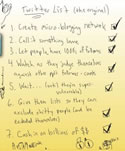 Twitter List (the original)
1. Create micro-blogging network
2. Call it something funny
3. Let people have 1000s of followers
4. Watch as they judge themselves
against other split followers-counts
5. Wait... (that's
vulnerable)
6. Give them lists so they can
exclude people (and be
excluded themselves)
7. Cash in on billions of $$